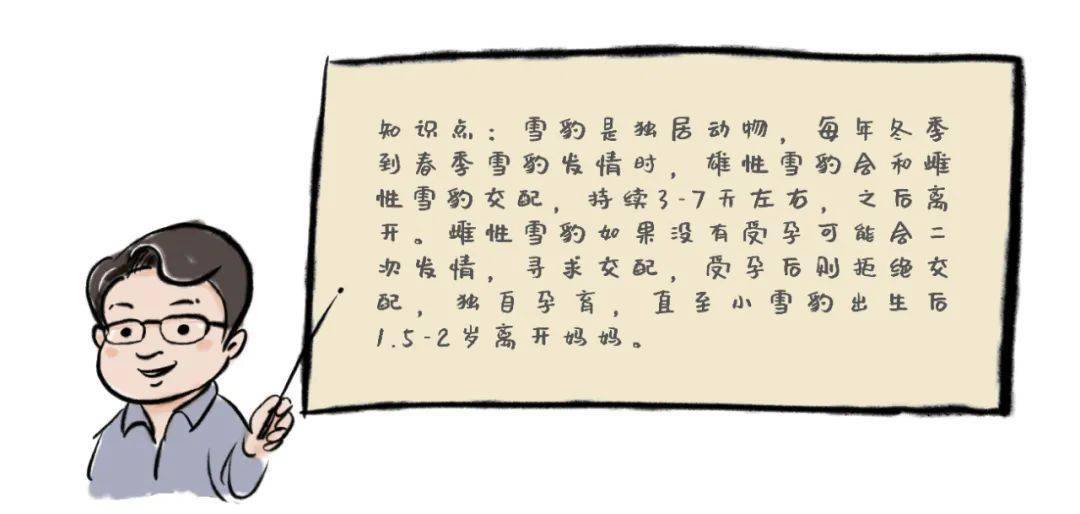 知识点：雪豹是独居动物，每年冬季
到春季雪豹发情时，雄性雪豹会和雌
性雪豹交配，持续3-7天左右，之后离
开。雌性雪豹如果没有受孕可能会二
次发情，寻求交配，受孕后则拒绝交
配，独自孕育，直至小雪豹出生后
1.5-2岁离开妈妈。